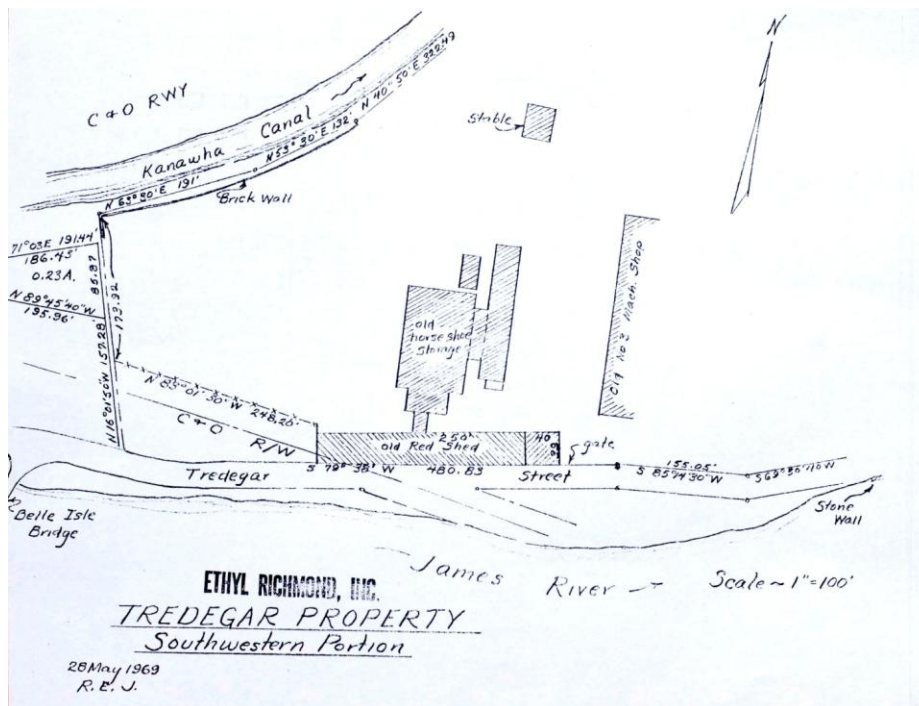 N
C & O RWY
Kanawha Canal
N 63° 30' E 191'
N 53° 30' E 132'
N 40° 50' E 322.49
Brick Wall
Stable
71°03E 191.44'
186.43'
0.23A.
N 89°45'40"W
195.96'
85.87
173.92
N 16°01'50"W 157.28'
N 83° 01' 30" W 248.20'
C & O R/W
old
horse shoe
storage
Old No 3 Mach. Shop
250'
old Red Shed
40
gate
S 79° 38' W 480.83
Tredegar Street
155.05'
S 85°41'30"W
Belle Isle
Bridge
Stone
Wall
James River
Scale ~ 1"=100'
ETHYL RICHMOND, INC.
TREDEGAR PROPERTY
Southwestern Portion
28 May 1969
R. E. J.